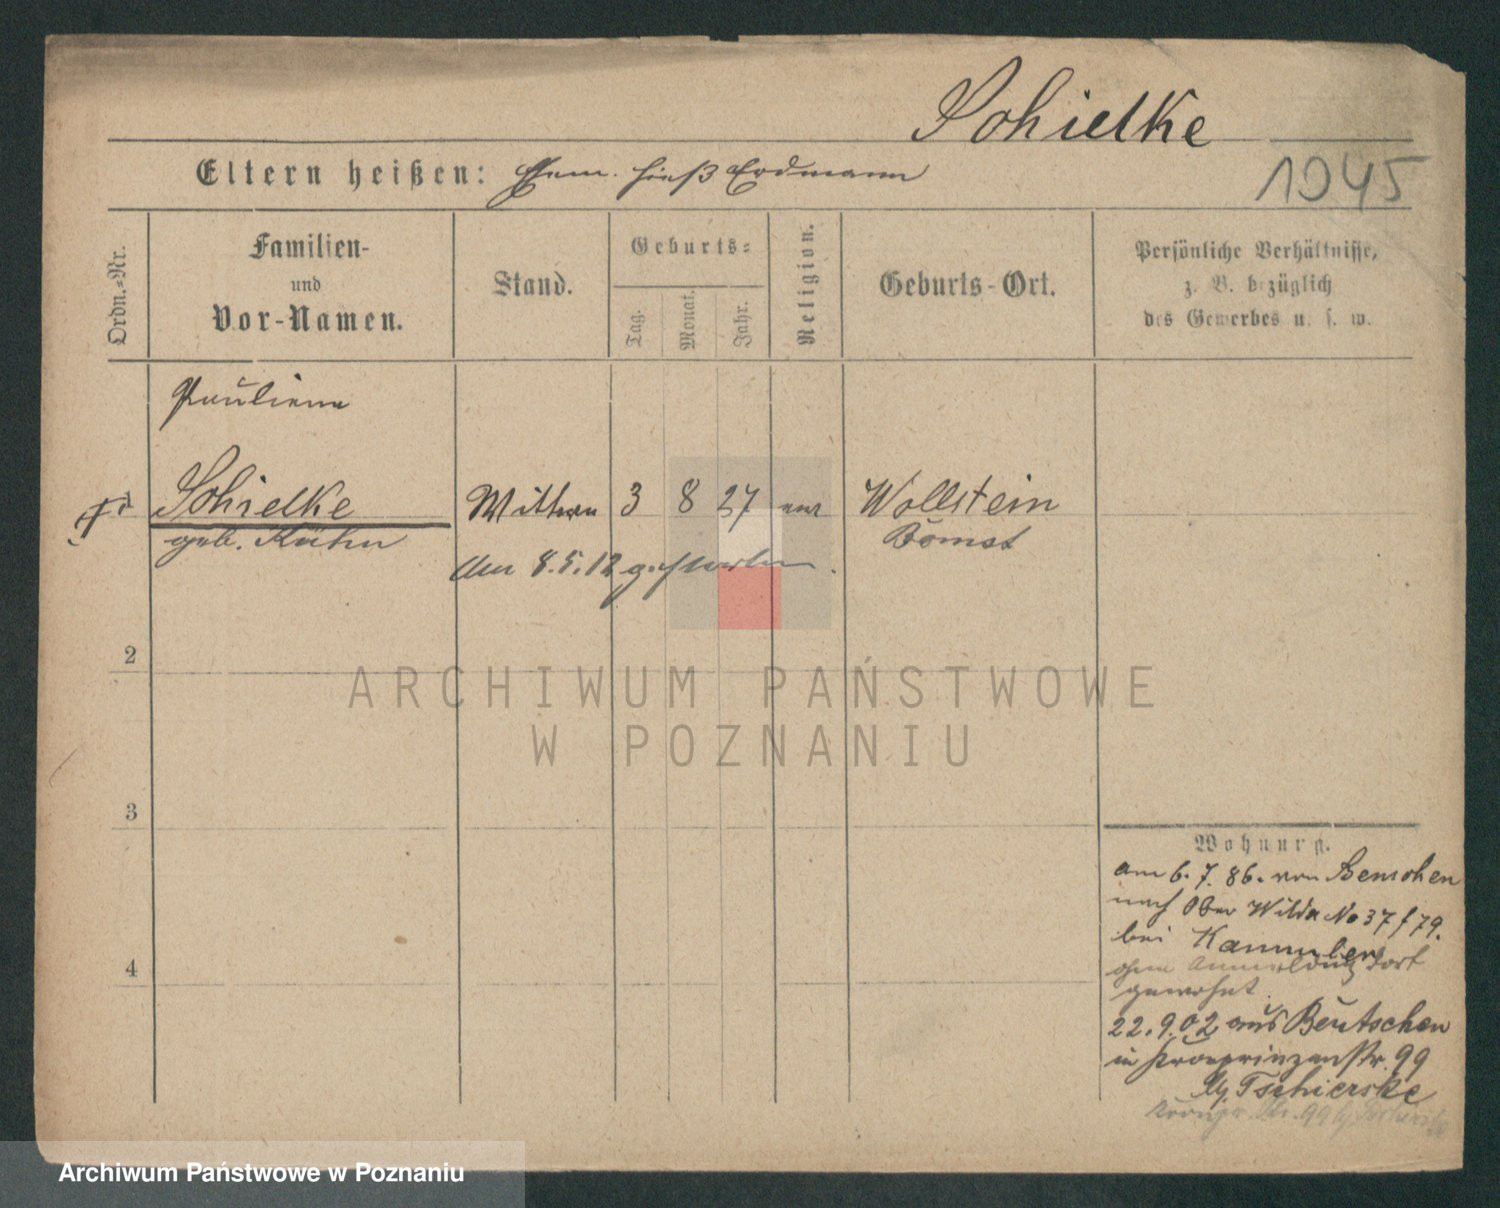 Schielke
1945
Eltern heißen: Ehem. hieß Erdmann
Ordn.-Nr.
Familien-
und
Vor-Namen.
Stand.
Geburts-
Tag.
Monat.
Jahr.
Religion.
Geburts-Ort.
Persönliche Verhältnisse,
z. B. bezüglich
des Gewerbes u. s. w.
Pauliene
1 Schielke Wittwe 3 8 27 Wollstein
geb. Kühn Bomst
am 8.5.12 gestorben.
2
3
4
Wohnung.
am 6.7.86. von Bentschen
nach Ober Wilda No 37/79.
bei Kammler
ohne Anmeldung dort
gewohnt.
22.9.02 aus Bentschen
in Kronprinzenstr. 99
bj. Tschierske
99 bj Tschierske
ARCHIWUM PAŃSTWOWE
W POZNANIU
Archiwum Państwowe w Poznaniu